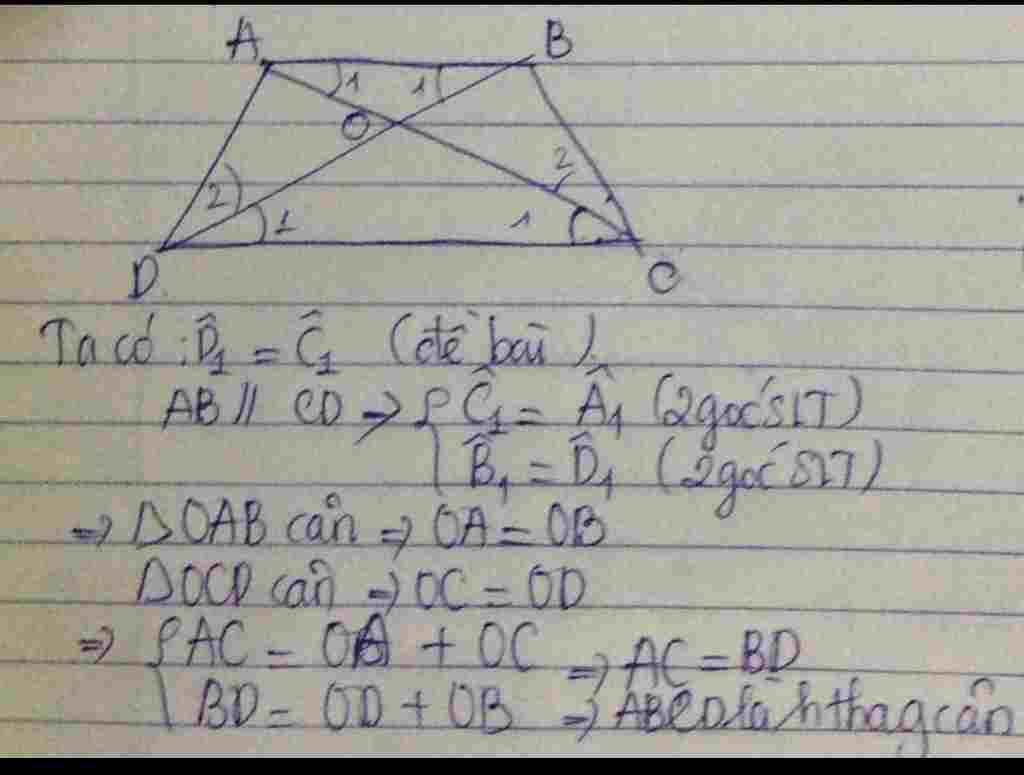 A B
1 1
O
2 2
1 1
D C
Ta có : D̂₁ = Ĉ₁ (đề bài).
AB // CD => { Ĉ₁ = Â₁ (2 góc SLT)
B̂₁ = D̂₁ (2 góc SLT)
=> ΔOAB cân => OA = OB
ΔOCD cân => OC = OD
=> { AC = OA + OC => AC = BD
BD = OD + OB => ABCD là hthag cân